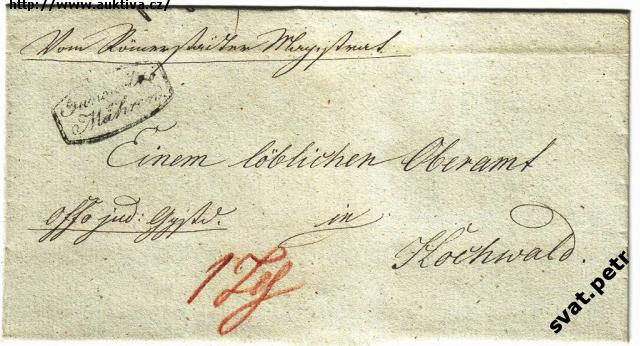 http://www.auktiva.cz/
Vom Römerstädter Magistrat
Mähren
Einem löblichen Oberamt
Offo jud:
in
Hochwald.
svat.petr